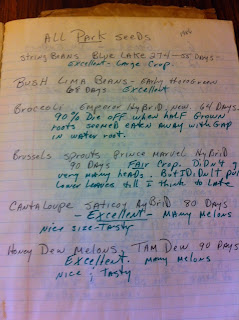 ALL Park Seeds
String Beans Blue Lake 274-55 Days
Excellent - Large Crop.
Bush Lima Beans - Early Thorogreen
68 Days Excellent
Broccoli Emperor Hybrid, New 64 Days.
90% Die off when half grown
roots seemed eaten away with gap
in water root.
Brussels sprouts Prince Marvel Hybrid
90 Days Fair Crop. Didn't g
very many heads. But I Didn't pul
Lower leaves till I think to late
Cantaloupe Saticoy Hybrid 80 Days
- Excellent - Many Melons
Nice size-Tasty
Honey Dew Melons, Tam Dew 90 Days
Excellent. Many Melons
Nice & Tasty